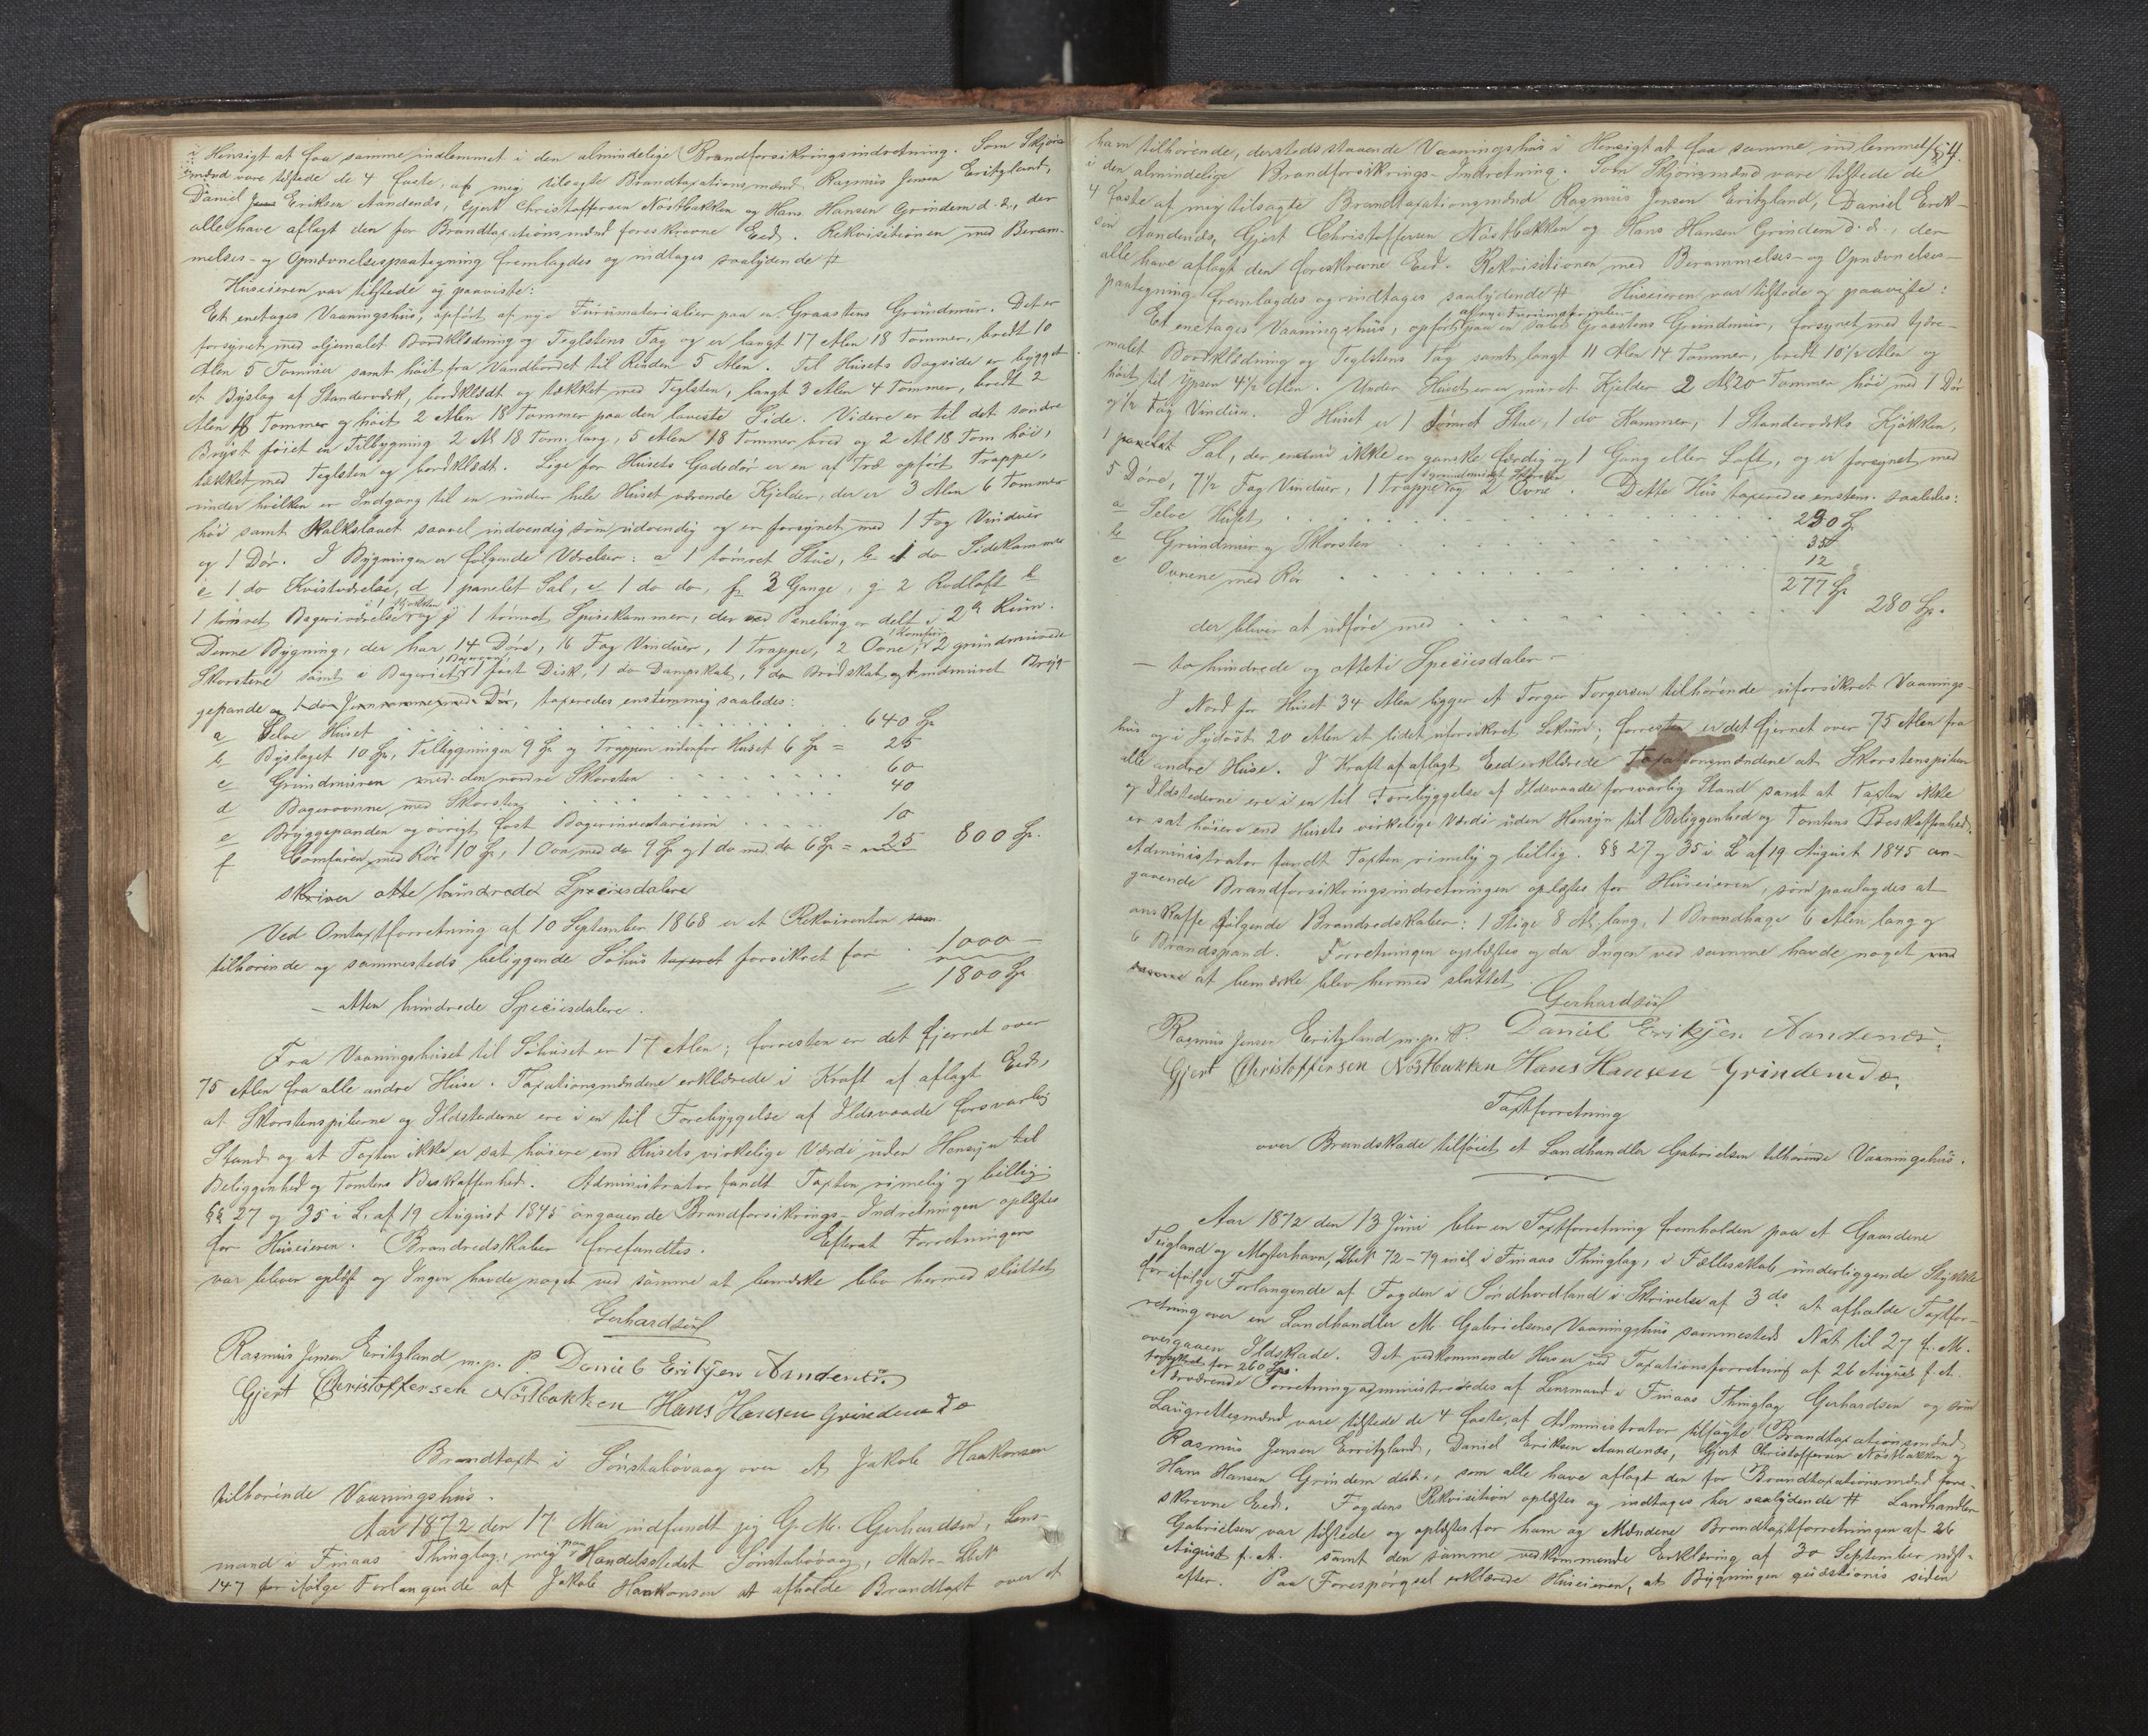 i Hensigt at faa samme indlemmet i den almindelige Brandforsikringsindretning. Som Skjøns-
mænd vare tilstede de 4 faste, af mig tilsagte Brandtaxationsmænd Rasmus Jensen Eritzland,
Daniel Eriksen Aandenæs, Gjert Christoffersen Nöstbakken og Hans Hansen Grindem d. æ., der
alle have aflagt den for Brandtaxationsmænd foreskrevne Eed. Rekvisitionen med Beram-
melses- og Opnævnelsespaategning fremlagdes og indtages saalydende #
Huseieren var tilstede og paaviste:
Et enetages Vaaningshus, opført af nye Furumaterialier paa en Graastens Grundmur. Det er
forsynet med oljemalet Bordklædning og Teglstens Tag og er langt 17 Alen 18 Tommer, bredt 10
Alen 5 Tommer samt høit fra Vandbordet til Raften 5 Alen. Til Husets Bagside er bygget
et Bislag af Standerværk, bordklædt og tækket med Teglsten, langt 3 Alen 4 Tommer, bredt 2
Alen Tommer og høit 2 Alen 18 Tommer paa den laveste Side. Videre er til det søndre
Bryst føiet en Tilbygning 2 Al 18 Tom. lang, 5 Alen 18 Tommer bred og 2 Al 18 Tom høi,
tækket med Teglsten og bordklædt. Lige for Husets Gadedør er en af Træ opført Trappe,
under hvilken er Indgang til en under hele Huset værende Kjelder, der er 3 Alen 6 Tommer
høi samt kalkslaaet saavel indvendig som udvendig og er forsynet med 1 Fag Vinduer
og 1 Dør. I Bygningen er følgende Værelser: a 1 tømret Stue, b 1 do Sidekammer
c 1 do Kvistværelse, d 1 panelet Sal, e 1 do do, f 3 Gange, g 2 Rodloft h
1 tømret Bageriværelse i 1 Kjøkken og j 1 tømret Spisekammer, der ved Paneling er delt i 2de Rum.
Denne Bygning, der har 14 Døre, 16 Fag Vinduer, 1 Trappe, 2 Ovne, 1 Komfur, 2 grundmurede
Skorstene samt i Bageriet 1 Bagerovn, 1 fast Disk, 1 do Dampskab, 1 do Brødskab og 1 indmuret Bryg-
gepande taxeredes enstemmig saaledes:
a Selve Huset . . . 640 Sp
b Bislaget 10 Sp, Tilbygningen 9 Sp og Trappen udenfor Huset 6 Sp = 25
c Grundmuren med den nordre Skorsten . . . 60
d Bagerovnne med Skorsten . . . 40
e Bryggepanden og øvrigt fast Bagerinventarium . . . 10
f Comfuren med Rør 10 Sp, 1 Ovn med do 9 Sp og 1 do med do 6 Sp = 25 800 Sp.
skriver otte hundrede Speciesdalere
Ved Omtaxtforretning af 10 September 1868 er et Rekvirenten
tilhørende og sammesteds beliggende Søhus taxeret forsikret for . 1000 –
1800 Sp
– atten hundrede Speciesdalere.
Fra Vaaningshuset til Søhuset er 17 Alen; forresten er det fjernet over
75 Alen fra alle andre Huse. Taxationsmændene erklærede i Kraft af aflagt Eed,
at Skorstenspiberne og Ildstederne ere i en til Forebyggelse af Ildsvaade forsvarlig
Stand og at Taxten ikke er sat høiere end Husets virkelige Værdi uden Hensyn til
Beliggenhed og Tomtens Beskaffenhed. Administrator fandt Taxten rimelig og billig.
§§ 27 og 35 i L. af 19 August 1845 angaaende Brandforsikrings-Indretningen oplæstes
for Huseieren. Brandredskaber forefandtes. Efterat Forretningen
var bleven oplæst og Ingen havde noget ved samme at bemærke blev hermed sluttet
Gerhardsen
Rasmus Jensen Eritzland m. p. P. Daniel Eriksen Aandenæs
Gjert Christoffersen Nöstbakken Hans Hansen Grindem d æ
Brandtaxt i Sønstabøvaag over et Jakob Haakonsen
tilhørende Vaaningshus.
Aar 1872 den 17 Mai indfandt jeg G. M. Gerhardsen, Lens-
mand i Finaas Thinglag, mig paa Handelsstedet Sønstabøvaag, Matr. Lbn
147 for ifølge Forlangende af Jakob Haakonsen at afholde Brandtaxt over et
ham tilhørende, dersteds staaende Vaaningshus i Hensigt at faa samme indlemmet
i den almindelige Brandforsikrings-Indretning. Som Skjønsmænd vare tilstede de
4 faste af mig tilsagte Brandtaxationsmænd Rasmus Jensen Eritzland, Daniel Erik-
sen Aandenæs, Gjert Christoffersen Nöstbakken og Hans Hansen Grindem d. æ., der
alle have aflagt den foreskrevne Eed. Rekvisitionen med Berammelses- og Opnævnelses-
paategning fremlagdes og indtages saalydende # Huseieren var tilstede og paaviste:
Et enetages Vaaningshus, opført af nye Furumaterialier paa en Graastens Grundmur, forsynet med tjære-
malet Bordklædning og Teglstens Tag samt langt 11 Alen 14 Tommer, bredt 10½ Alen og
høit til Ypsen 4½ Alen. Under Huset er en muret Kjelder 2 Al 20 Tommer høi med 1 Dør
og ½ Fag Vinduer. I Huset er 1 tømret Stue, 1 do Kammer, 1 Standerværks Kjøkken,
1 panelet Sal, der endnu ikke er ganske færdig og 1 Gang eller Loft, og er forsynet med
5 Døre, 7½ Fag Vinduer, 1 Trappe, 1 grundmuret Skorsten og 2 Ovne. Dette Hus taxeredes enstem. saaledes:
a Selve Huset . . . 230 Sp
b Grundmur og Skorsten . . . 35
c Ovnene med Rør . . . 12
277 Sp
der bliver at udføre med . . . 280 Sp.
– to hundrede og otteti Speciesdaler –
I Nord for Huset 34 Alen ligger et Torger Torgersen tilhørende uforsikret Vaanings-
hus og i Sydost 20 Alen et lidet uforsikret Lokum; forresten er det fjernet over 75 Alen fra
alle andre Huse. I Kraft af aflagt Eed erklærede Taxationsmændene at Skorstenspiben
og Ildstederne ere i en til Forebyggelse af Ildsvaade forsvarlig Stand samt at Taxten ikke
er sat høiere end Husets virkelige Værdi uden Hensyn til Beliggenhed og Tomtens Beskaffenhed.
Administrator fandt Taxten rimelig og billig. §§ 27 og 35 i L af 19 August 1845 an-
gaaende Brandforsikringsindretningen oplæstes for Huseieren, som paalagdes at
anskaffe følgende Brandredskaber: 1 Stige 8 Al lang, 1 Brandhage 6 Alen lang og
6 Brandspand. Forretningen oplæstes og da Ingen ved samme havde noget
at bemærke blev hermed sluttet.
Gerhardsen
Rasmus Jensen Eritzland m. p. P. Daniel Eriksen Aandenæs.
Gjert Christoffersen Nöstbakken Hans Hansen Grindem d æ.
Taxtforretning
over Brandskade tilføiet et Landhandler Gabrielsen tilhørende Vaaningshus.
Aar 1872 den 13 Juni blev en Taxtforretning fremholden paa et Gaardene
Teigland og Mosterhavn, Lbn 72 – 79 incl i Finaas Thinglag, i Fællesskab underliggende Stykke
for ifølge Forlangende af Fogden i Søndhordland i Skrivelse af 3 ds at afholde Taxtfor-
retning over en Landhandler M. Gabrielsens Vaaningshus sammesteds Nat til 27 f. M.
overgaaen Ildskade. Det vedkommende Hus er ved Taxationsforretning af 26 August f. A.
for 260 Sp.
Nærværende Forretning administreredes af Lensmand i Finaas Thinglag Gerhardsen og som
Laugrettesmænd vare tilstede de 4 faste, af Administrator tilsagte Brandtaxationsmænd
Rasmus Jensen Erritzland, Daniel Eriksen Aandenæs, Gjert Christoffersen Nöstbakken og
Hans Hansen Grindem d. æ., som alle have aflagt den for Brandtaxationsmænd fore-
skrevne Eed. Fogdens Rekvisition oplæstes og indtages her saalydende # Landhandler
Gabrielsen var tilstede og oplæstes for ham og Mændene Brandtaxtforretningen af 26
August f. A. samt den samme vedkommende Erklæring af 30 September næst-
efter. Paa Forespørgsel erklærede Huseieren, at Bygningen quæstionis siden